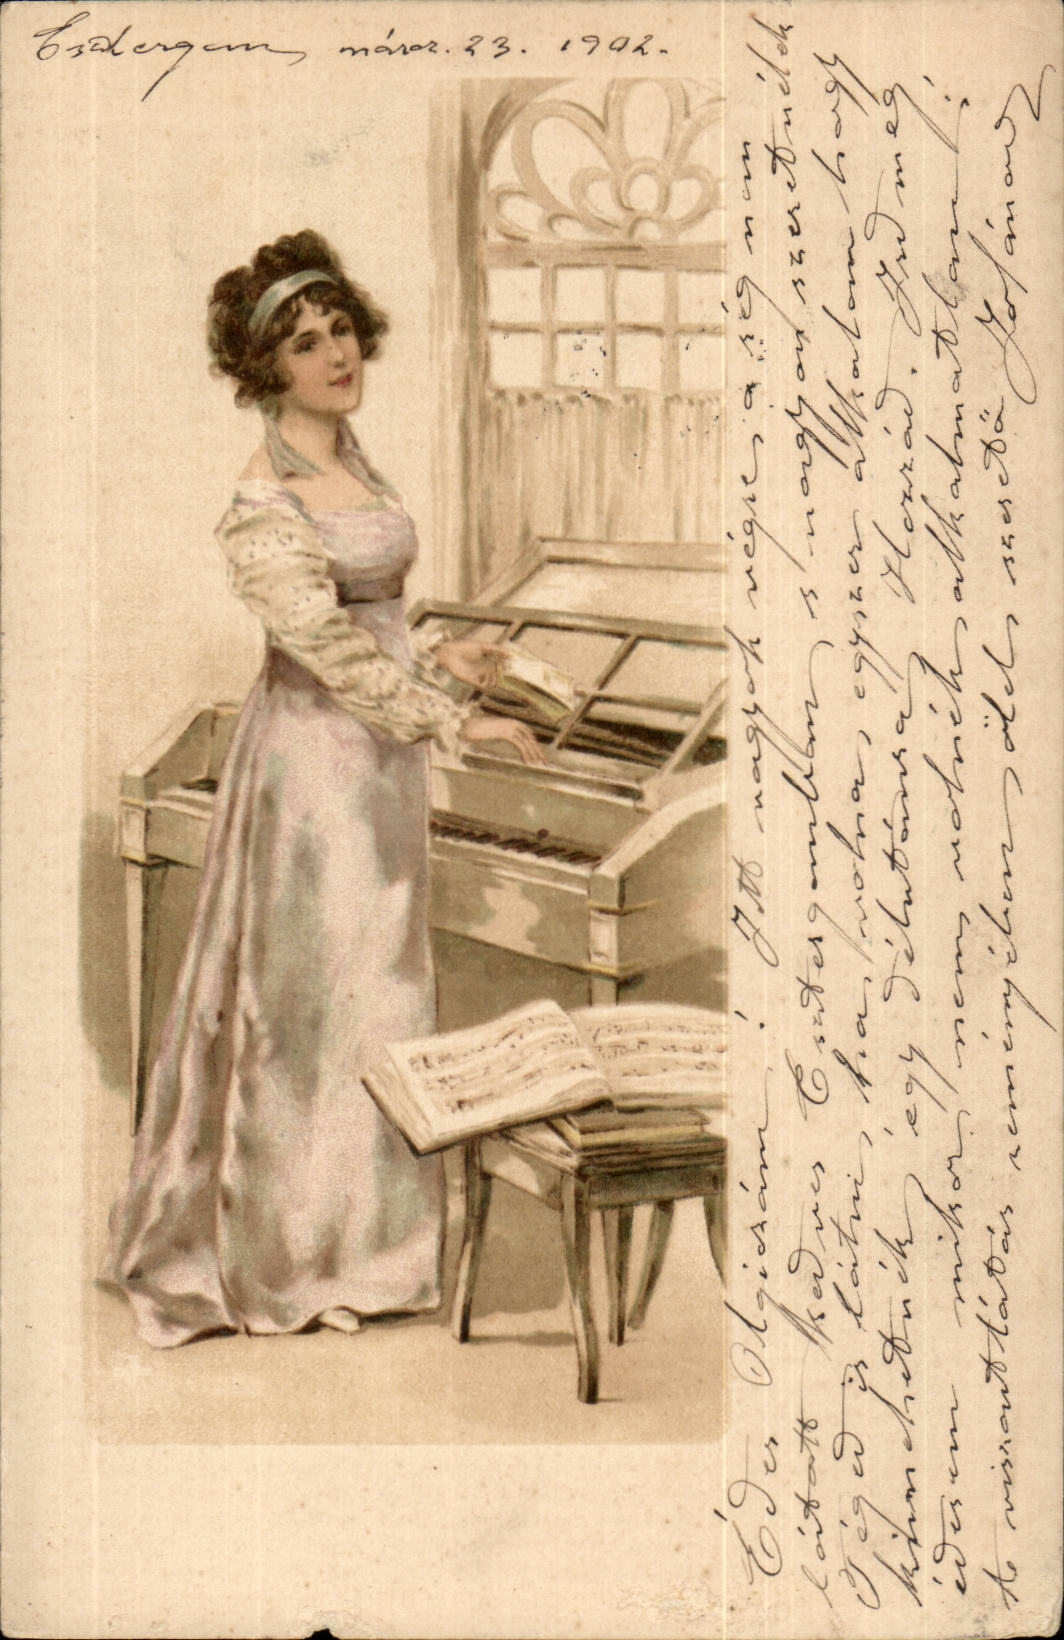 Esztergom, márcz. 23. 1902.
Édes Olgiczám! Itt vagyok végre a rég nem
látott kedves Esztergomban, s nagyon szeretnélek
Téged is látni, ha volna egyszer alkalom hogy
kimehetnék egy délutánra Hozzád. Ird meg
édesem mikor nem volnék alkalmatlan!
A viszontlátás reményében ölel szerető Zofánod